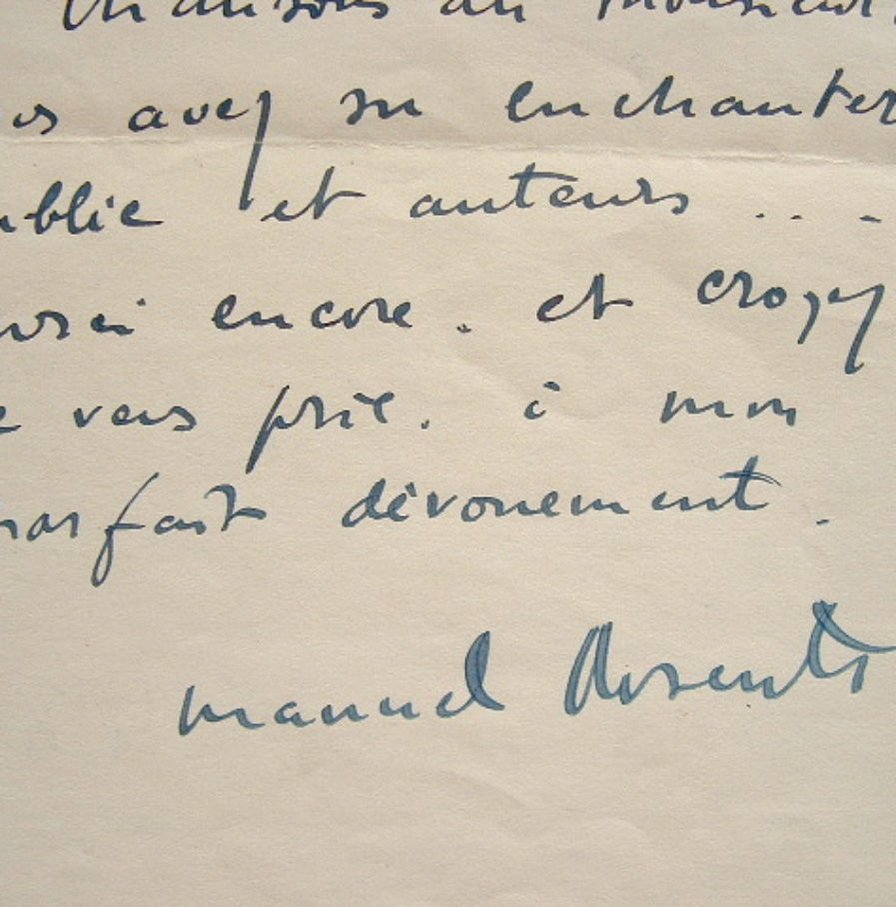 Chansons du Monsieur
us avez su enchanter
ublic et auteurs ...
encore. et croyez
e vous prie. à mon
parfait dévouement.
manuel Rosenth